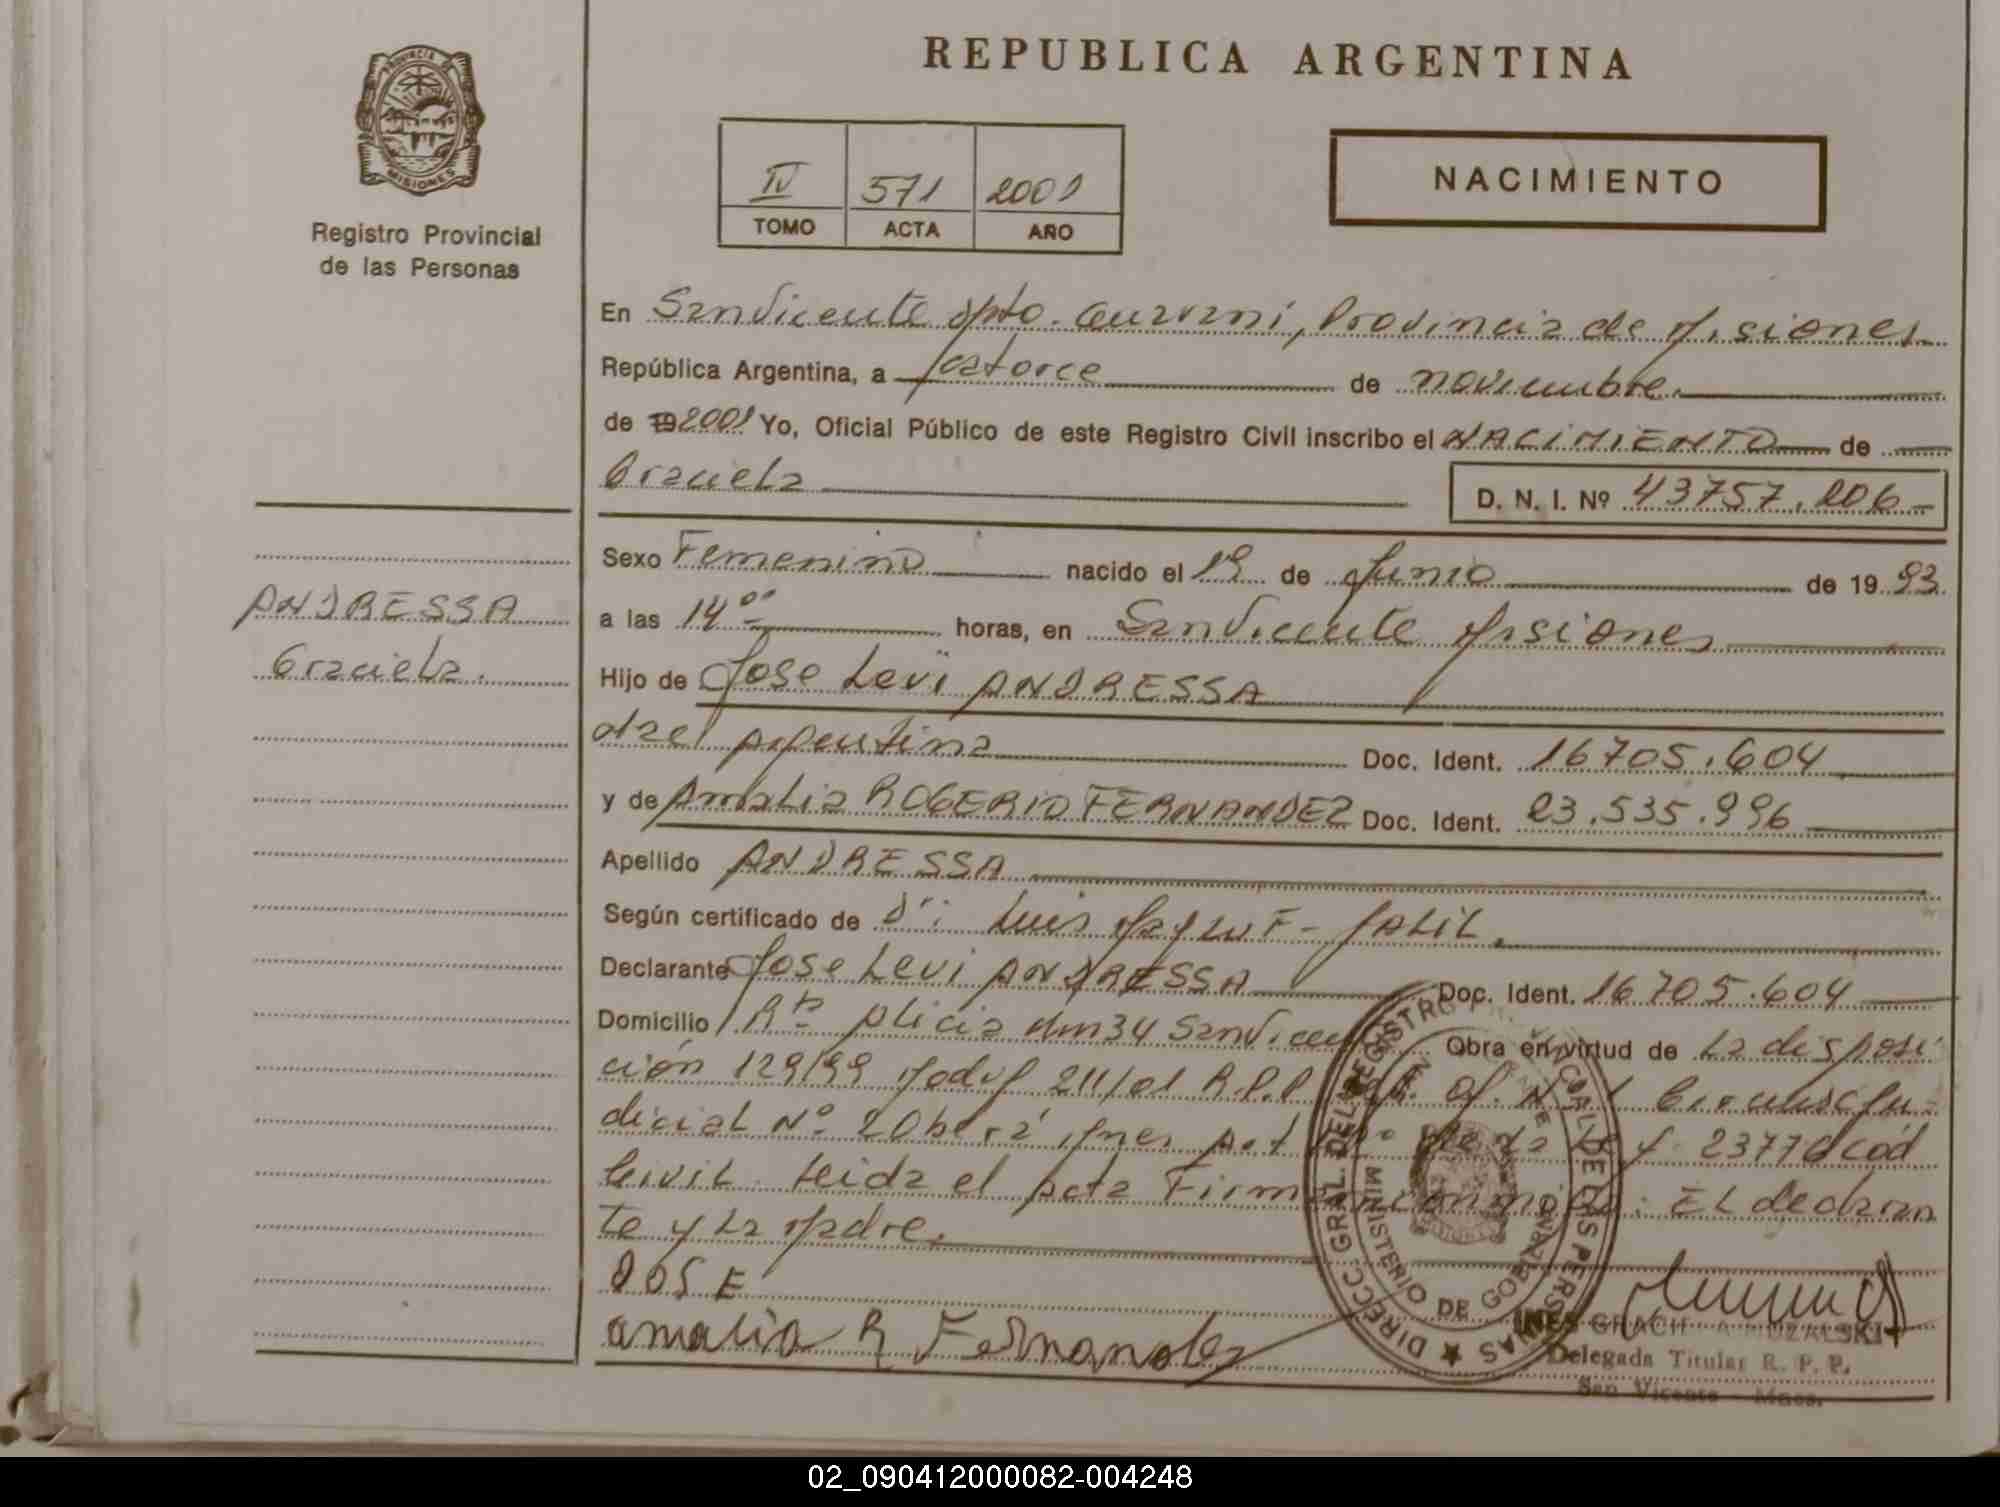 REPUBLICA ARGENTINA
PROVINCIA DE
MISIONES
Registro Provincial
de las Personas
IV 571 2001
TOMO ACTA AÑO
NACIMIENTO
En San Vicente Dpto. Guarani, Provincia de Misiones
República Argentina, a catorce de noviembre
de 19 2001 Yo, Oficial Público de este Registro Civil inscribo el NACIMIENTO de
Graciela
D. N. I. Nº 43757.206
Sexo Femenino nacido el 19 de Junio de 19 93
a las 14 00 horas, en San Vicente Misiones
Hijo de Jose Levi ANDRESSA
dad argentina Doc. Ident. 16705.604
y de Amalia ROGERIO FERNANDEZ Doc. Ident. 23.535.996
Apellido ANDRESSA
Según certificado de Dr: Luis F- JALIL.
Declarante Jose Levi ANDRESSA Doc. Ident. 16705.604
Domicilio Rta Alicia Km 34 San Vicente Obra en virtud de La disposi
ción 129/99 Modif 211/01 R.P.P Circunsc Ju
dicial Nº 2 Oberá Mnes Cód
Civil. Leida el Acta Firman conmigo: EL declaran
te y La Madre.
JOSE
amalia R Fernandez
DIRECC. GRAL. DEL REGISTRO PROVINCIAL DE LAS PERSONAS
MINISTERIO DE GOBIERNO
Delegada Titular R. P. P.
San Vicente - Mnes.
ANDRESSA
Graciela.
02_090412000082-004248